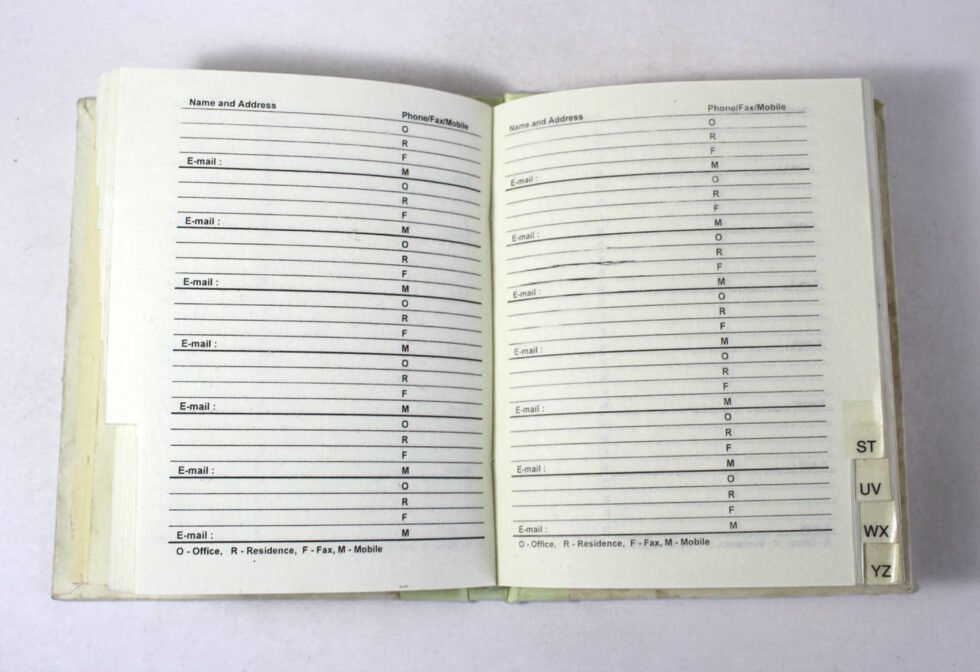 Name and Address Phone/Fax/Mobile
O
R
F
E-mail : M
O
R
F
E-mail : M
O
R
F
E-mail : M
O
R
F
E-mail : M
O
R
F
E-mail : M
O
R
F
E-mail : M
O
R
F
E-mail : M
O - Office, R - Residence, F - Fax, M - Mobile
Name and Address Phone/Fax/Mobile
O
R
F
E-mail : M
O
R
F
E-mail : M
O
R
F
E-mail : M
O
R
F
E-mail : M
O
R
F
E-mail : M
O
R
F
E-mail : M
O
R
F
E-mail : M
O - Office, R - Residence, F - Fax, M - Mobile
ST
UV
WX
YZ